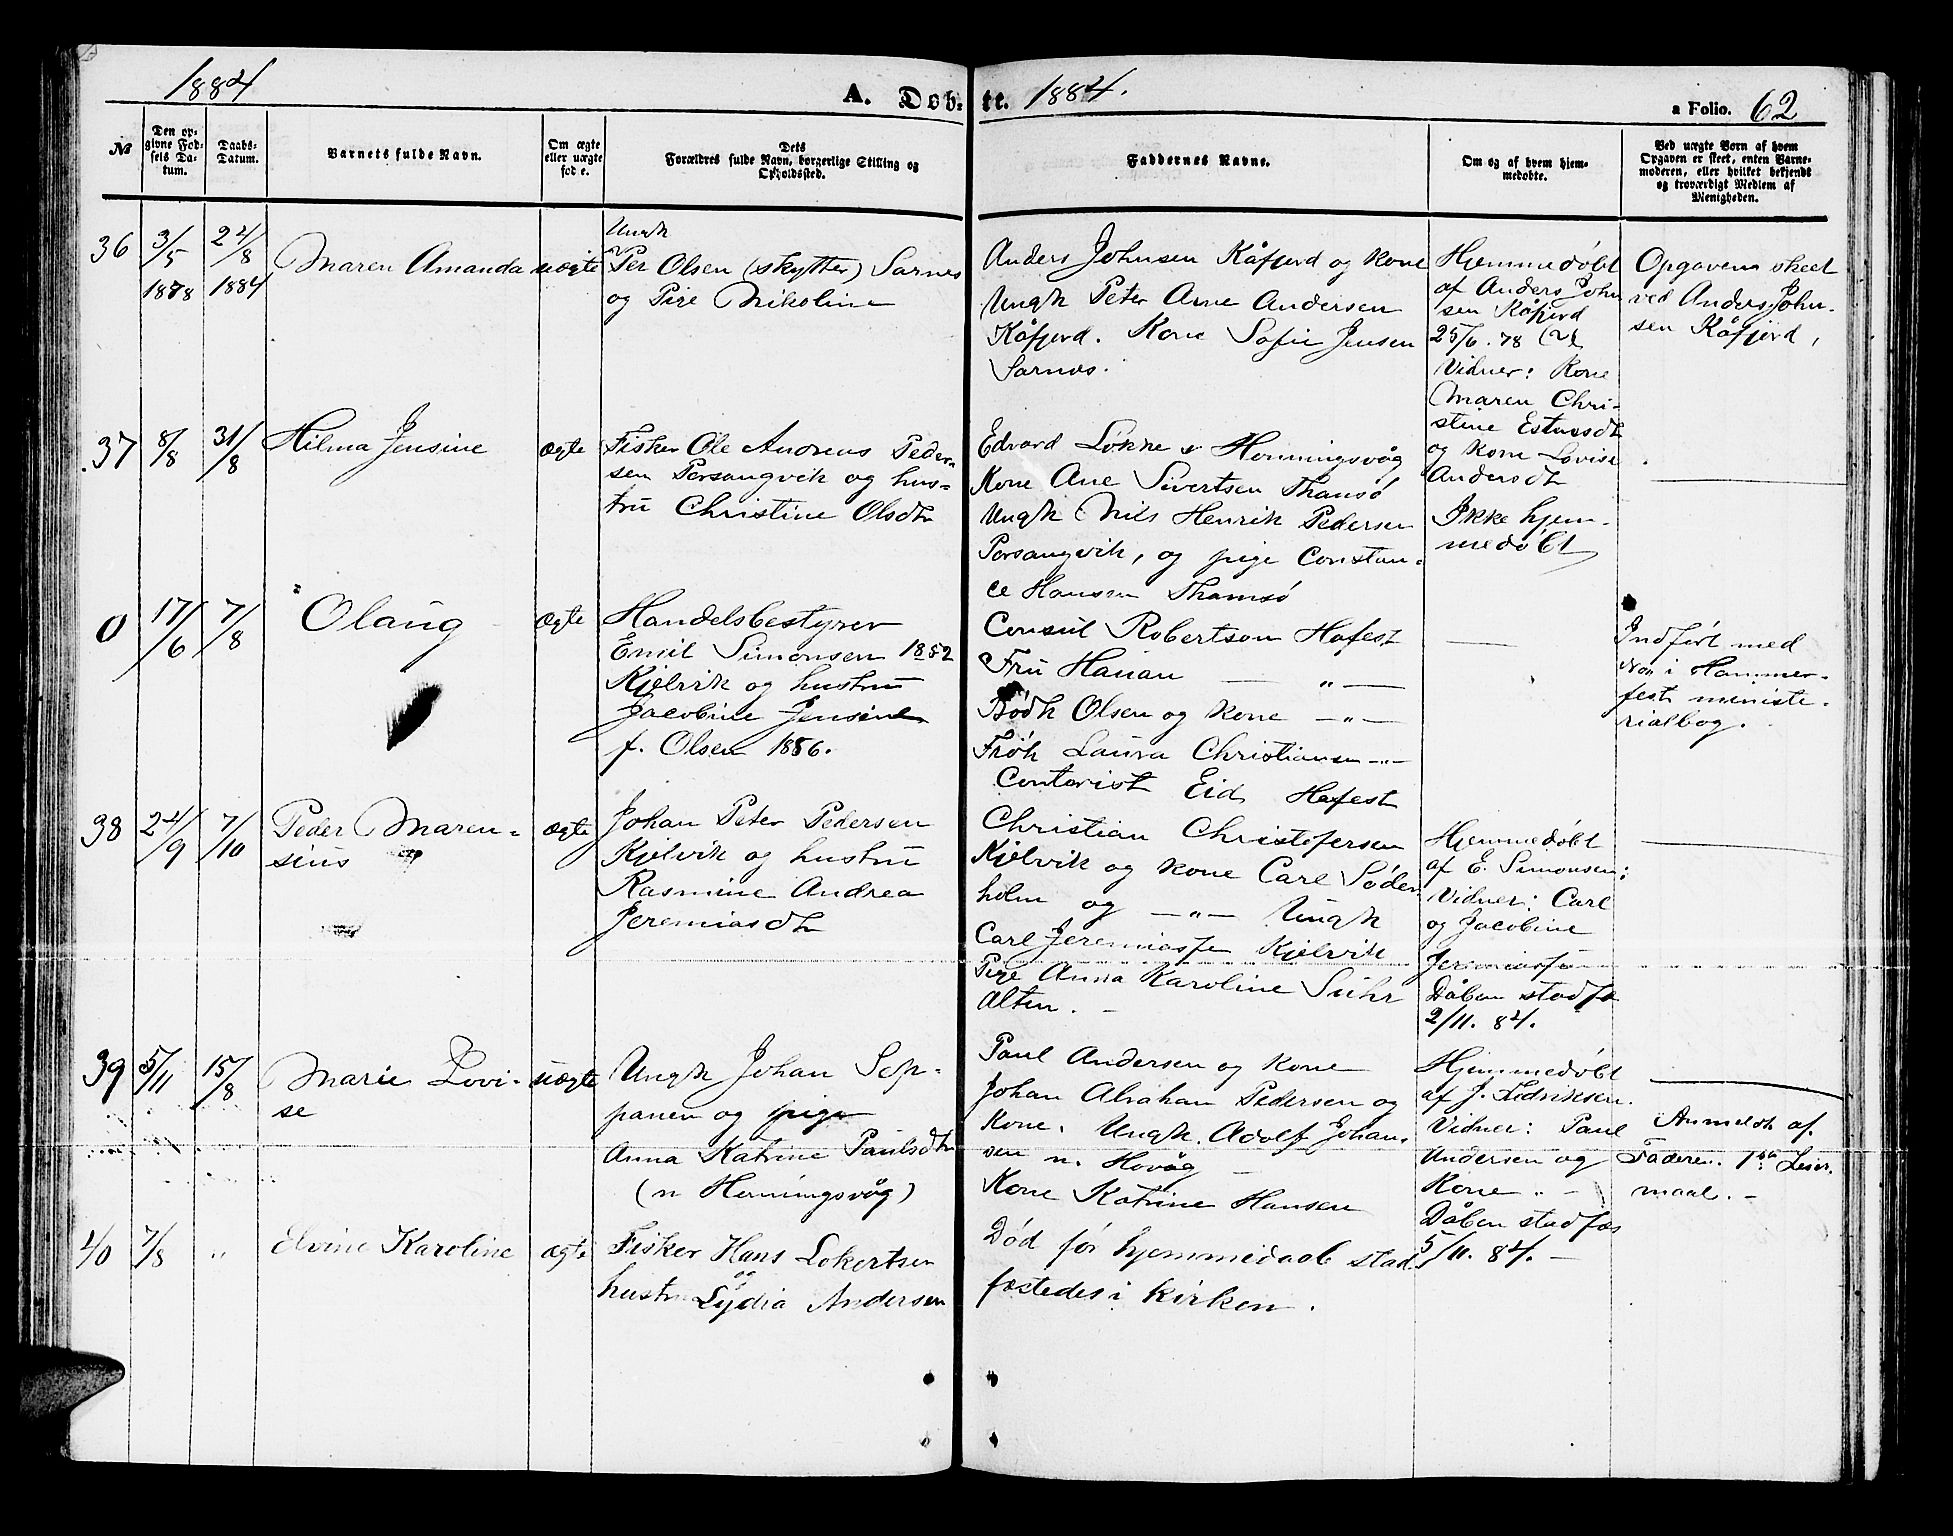 1884
A. Døb-
te. 1884.
a Folio. 62
№
Den op-
givne Fød-
sels Da-
tum.
Daabs-
Datum.
Barnets fulde Navn.
Om ægte
eller uægte
fød e.
Dets
Forældres fulde Navn, borgerlige Stilling og
Opholdssted.
Faddernes Navne.
Om og af hvem hjem-
medøbte.
Ved uægte Børn af hvem
Opgaven er skeet, enten Barne-
moderen, eller hvilket bekjendt
og troværdigt Medlem af
Menigheden.
36
3/5
1878
24/8
1884
Maren Amanda
uægte
Ungk
Per Olsen (skytter) Sarnes
og Pige Nikoline
Anders Johnsen Kåfjord og Kone
Ungk Peter Arne Andersen
Kåfjord. Kone Sofie Jensen
Sarnes.
Hjemmedøbt
af Anders John
sen Kåfjord
25/6. 78
Vidner: Kone
Maren Chri-
stine
og Kone Lovise
Andersdt
Opgaven skeet
ved Anders John-
sen Kåfjord,
37
8/8
31/8
Hilma Jensine
ægte
Fisker Ole Andreas Peder-
sen Porsangvik og hus-
tru Christine Olsdtr
Edvard Løkke Honningsvåg
Kone Ane Sivertsen Thamsø
Ungk Nils Henrik Pedersen
Porsangvik, og pige Constan-
ce Hansen Thamsø
Ikke hjem-
medøbt
0
17/6
7/8
Olaug
ægte
Handelsbestyrer
Emil Simonsen 1852
Kjelvik og hustru
Jacobine Jensine
f. Olsen 1856.
Consul Robertson Hafest
Fru Hauan — „ —
Bødk Olsen og Kone — „ —
Frøk Laura Christiansen — „ —
Contorist Eid Hafest
Indført med
Nor i Hammer-
fest meniste-
rialbog.
38
24/9
7/10
Peder Maren-
sius
ægte
Johan Peter Pedersen
Kjelvik og hustru
Rasmine Andrea
Jeremiasdtr
Christian Christofersen
Kjelvik og Kone Carl Søder
holm og — „ — Ungk
Carl Jeremiassen Kjelvik
Pige Anna Karoline Suhr
Alten.
Hjemmedøbt
af E. Simonsen:
Vidner: Carl
og Jacobine
Jeremiassen
Dåben stadfæ
2/11. 84.
39
5/11
15/8
Marie Lovi-
se
uægte
Ungk Johan Sep-
panen og pige
Anna Katrine Paulsdtr
(n Honningsvåg)
Paul Andersen og Kone
Johan Abraham Pedersen og
Kone. Ungk. Adolf Johan-
sen n. Hovåg
Kone Katrine Hansen
Hjemmedøbt
af J. Fredriksen.
Vidner: Paul
Andersen og
Kone „ —
Dåben stadfæs
5/11. 84. —
Anmeldt af
Faderen. 1ste Leier-
maal. —
40
7/8
„
Elvine Karoline
ægte
Fisker Hans Lokertsen
og
hustru Lydia Andersen
Død før hjemmedaab stad
fæstedes i Kirken.